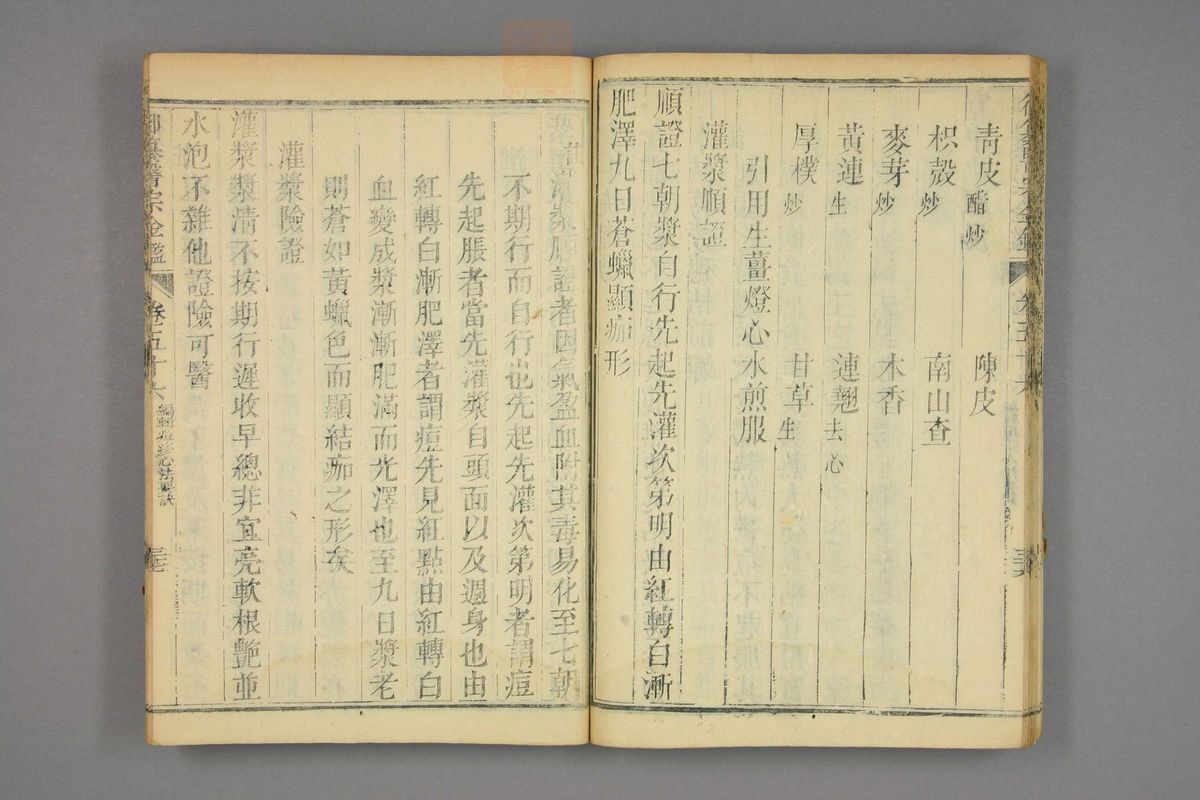 青皮 醋炒 陳皮
枳殼 炒 南山查
麥芽 炒 木香
黃連 生 連翹 去心
厚樸 炒 甘草 生
引用生薑燈心水煎服
灌漿順證
順證七朝漿自行先起先灌次第明由紅轉白漸
肥澤九日蒼蠟顯痂形
灌漿順證者因氣盈血附其毒易化至七朝
不期行而自行也先起先灌次第明者謂痘
先起脹者當先灌漿自頭面以及週身也由
紅轉白漸肥澤者謂痘先見紅點由紅轉白
血變成漿漸漸肥滿而光澤也至九日漿老
則蒼如黃蠟色而顯結痂之形矣
灌漿險證
灌漿漿清不按期行遲收早總非宜亮軟根艷並
水泡不雜他證險可醫
御纂醫宗金鑑 卷五十六 編輯痘疹心法要訣